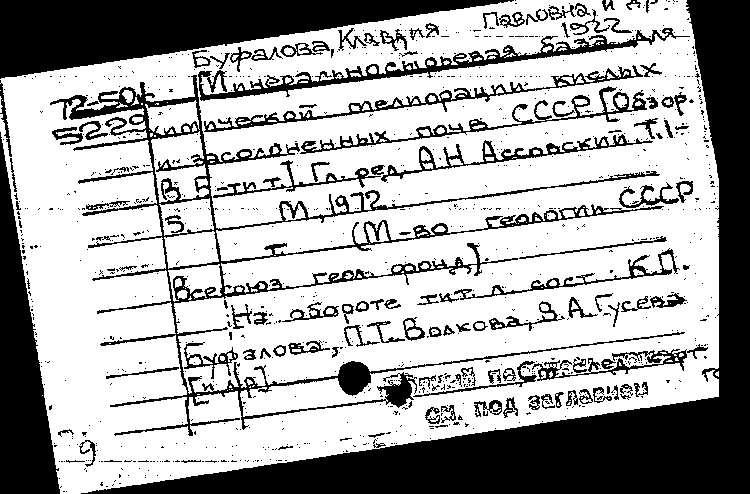 Буфалова, Клавдия Павловна, и др.
1922
72-50к Минеральносырьевая база для
5229 химической мелиорации кислых
и засоленных почв СССР. [Обзор.
В 5-ти т.]. Гл. ред. А.Н Ассовский. Т.1-
5. М., 1972.
т. (М-во геологии СССР.
Всесоюз геол. фонд)
На обороте тит. л. сост.: К.П.
Буфалова, П.Т. Волкова, З.А. Гусева
[и др].
след. карт.
см. под заглавием
9